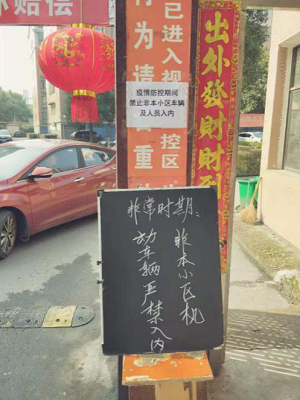 赔偿
已进入视
控区
行为请
重
出外發財財到
疫情防控期间
禁止非本小区车辆
及人员入内
非常时期:
非本小区机
动车辆严禁入内